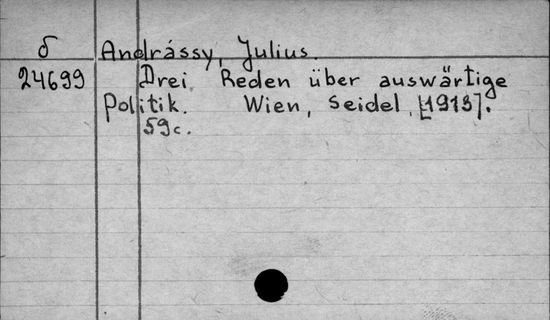 б Andrássy, Julius.
24699 Drei Reden über auswärtige
Politik. Wien, Seidel, [1913].
59c.